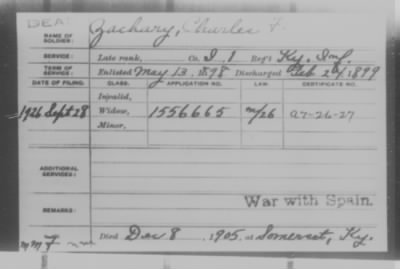 DEA
NAME OF SOLDIER: Zachary, Charles F.
SERVICE: Late rank, Co. I, 1 Reg't Ky. Inf.
TERM OF SERVICE: Enlisted May 13, 1898 Discharged Feb 24, 1899
DATE OF FILING. CLASS. APPLICATION NO. LAW. CERTIFICATE NO.
Invalid,
1926 Sept 28 Widow, 1556665 m/26 a7-26-27
Minor,
ADDITIONAL SERVICES:
War with Spain.
REMARKS:
Died Dec 8, 1905, at Somerset, Ky.